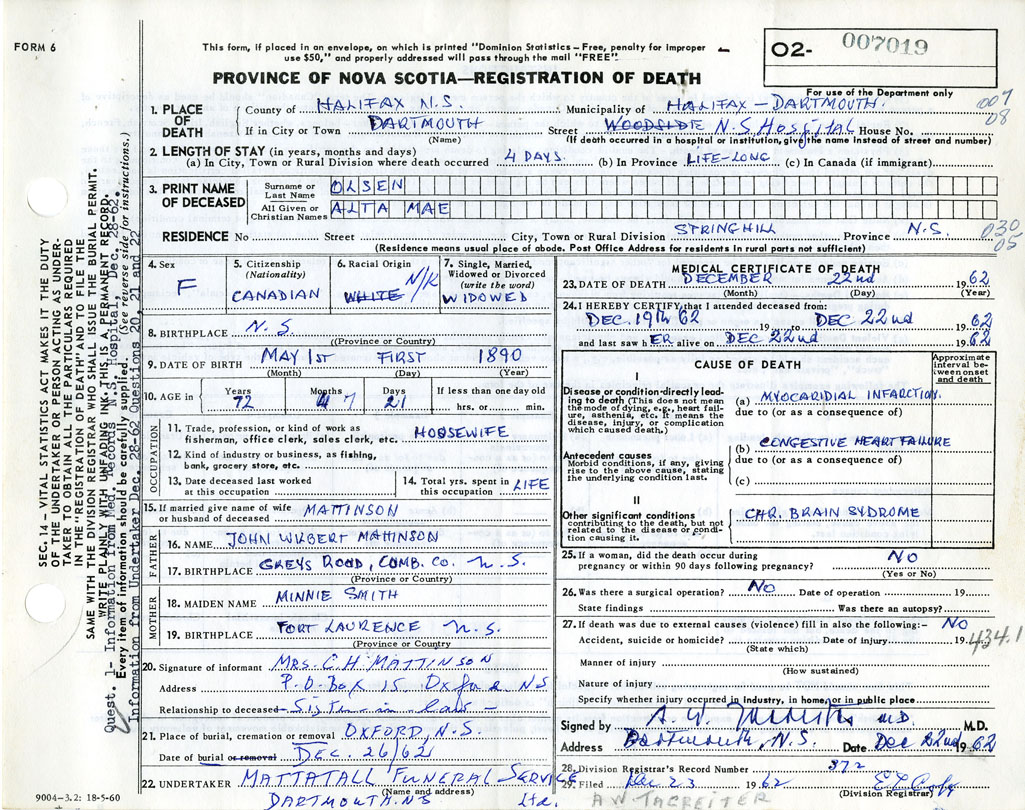 FORM 6
This form, if placed in an envelope, on which is printed "Dominion Statistics – Free, penalty for improper
use $50," and properly addressed will pass through the mail "FREE".
PROVINCE OF NOVA SCOTIA—REGISTRATION OF DEATH
O2- 007019
For use of the Department only
007
08
1. PLACE OF DEATH
County of HALIFAX N.S. Municipality of HALIFAX – DARTMOUTH.
If in City or Town DARTMOUTH Street WOODSIDE N.S. Hospital House No.
(Name) (If death occurred in a hospital or institution, give the name instead of street and number)
2. LENGTH OF STAY (in years, months and days)
(a) In City, Town or Rural Division where death occurred 4 DAYS. (b) In Province LIFE-LONG (c) In Canada (if immigrant)
3. PRINT NAME OF DECEASED
Surname or Last Name OLSEN
All Given or Christian Names ALTA MAE
RESIDENCE No Street City, Town or Rural Division STRINGHILL Province N.S.
030
05
(Residence means usual place of abode. Post Office Address for residents in rural parts not sufficient)
4. Sex F
5. Citizenship (Nationality) CANADIAN
6. Racial Origin WHITE N/K
7. Single, Married, Widowed or Divorced (write the word) WIDOWED
8. BIRTHPLACE N.S.
(Province or Country)
9. DATE OF BIRTH MAY 1st FIRST 1890
(Month) (Day) (Year)
10. AGE in Years 72 Months 7 Days 21 If less than one day old
hrs. or min.
OCCUPATION
11. Trade, profession, or kind of work as
fisherman, office clerk, sales clerk, etc. HOUSEWIFE
12. Kind of industry or business, as fishing,
bank, grocery store, etc.
13. Date deceased last worked
at this occupation
14. Total yrs. spent in
this occupation LIFE
15. If married give name of wife
or husband of deceased MATTINSON
FATHER
16. NAME JOHN WILBERT MATTINSON
17. BIRTHPLACE GREYS ROAD, CUMB. CO. N.S.
(Province or Country)
MOTHER
18. MAIDEN NAME MINNIE SMITH
19. BIRTHPLACE FORT LAURENCE N.S.
(Province or Country)
20. Signature of informant MRS. C.H. MATTINSON
Address P.O. BOX 15 Oxford NS
Relationship to deceased – Sister in law –
21. Place of burial, cremation or removal OXFORD, N.S.
Date of burial or removal DEC. 26/62
22. UNDERTAKER MATTATALL FUNERAL SERVICE Ltd.
(Name and address)
DARTMOUTH. NS
9004–3.2: 18-5-60
MEDICAL CERTIFICATE OF DEATH
23. DATE OF DEATH DECEMBER 22nd 1962
(Month) (Day) (Year)
24. I HEREBY CERTIFY that I attended deceased from:
DEC. 19th 62 19 to DEC 22nd 1962
and last saw hER alive on DEC 22nd 1962
CAUSE OF DEATH
Approximate interval between onset and death
I
Disease or condition directly leading to death (This does not mean
the mode of dying, e.g., heart failure, asthenia, etc. It means the
disease, injury, or complication which caused death.)
(a) MYOCARIDIAL INFARCTION.
due to (or as a consequence of)
Antecedent causes
Morbid conditions, if any, giving
rise to the above cause, stating
the underlying condition last.
(b) CONGESTIVE HEART FAILURE
due to (or as a consequence of)
(c)
II
Other significant conditions
contributing to the death, but not
related to the disease or condition causing it.
CHR. BRAIN SYDROME
25. If a woman, did the death occur during
pregnancy or within 90 days following pregnancy? NO
(Yes or No)
26. Was there a surgical operation? NO Date of operation 19
State findings Was there an autopsy?
27. If death was due to external causes (violence) fill in also the following:– NO
Accident, suicide or homicide? Date of injury 19
434.1
(State which)
Manner of injury
(How sustained)
Nature of injury
Specify whether injury occurred in industry, in home, or in public place
Signed by A. W. M.D. M.D.
Address Dartmouth, N.S. Date Dec 22nd 1962
28. Division Registrar's Record Number 372
29. Filed Dec 23 1962
(Division Registrar)
SEC. 14 – VITAL STATISTICS ACT MAKES IT THE DUTY
OF THE UNDERTAKER OR PERSON ACTING AS UNDERTAKER
TO OBTAIN ALL THE PARTICULARS REQUIRED
IN THE "REGISTRATION OF DEATH" AND TO FILE THE
SAME WITH THE DIVISION REGISTRAR WHO SHALL ISSUE THE BURIAL PERMIT.
WRITE PLAINLY WITH UNFADING INK. THIS IS A PERMANENT RECORD.
Quest. 1- Information from Med. Records N.S. Hospital, Dec. 28-62.
Every item of information should be carefully supplied. (See reverse side for instructions.)
Information from Undertaker Dec. 28-62 Questions 20, 21 and 22